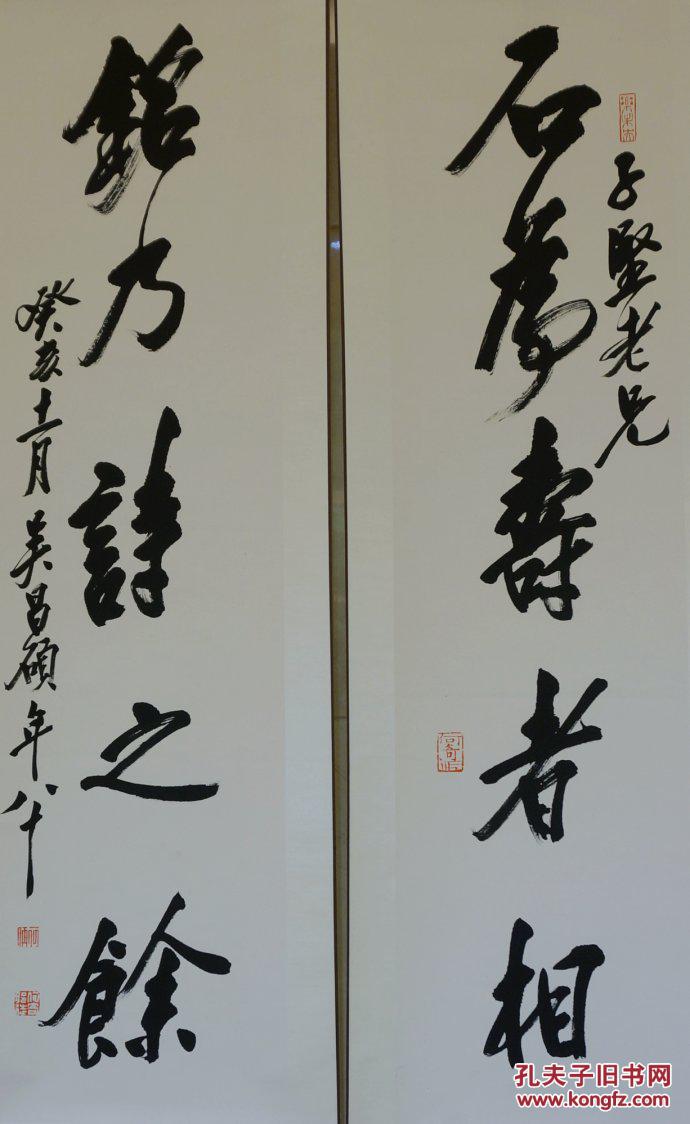 子堅老兄
石為壽者相
銘乃詩之餘
癸亥十一月吴昌碩年八十
孔夫子旧书网
www.kongfz.com